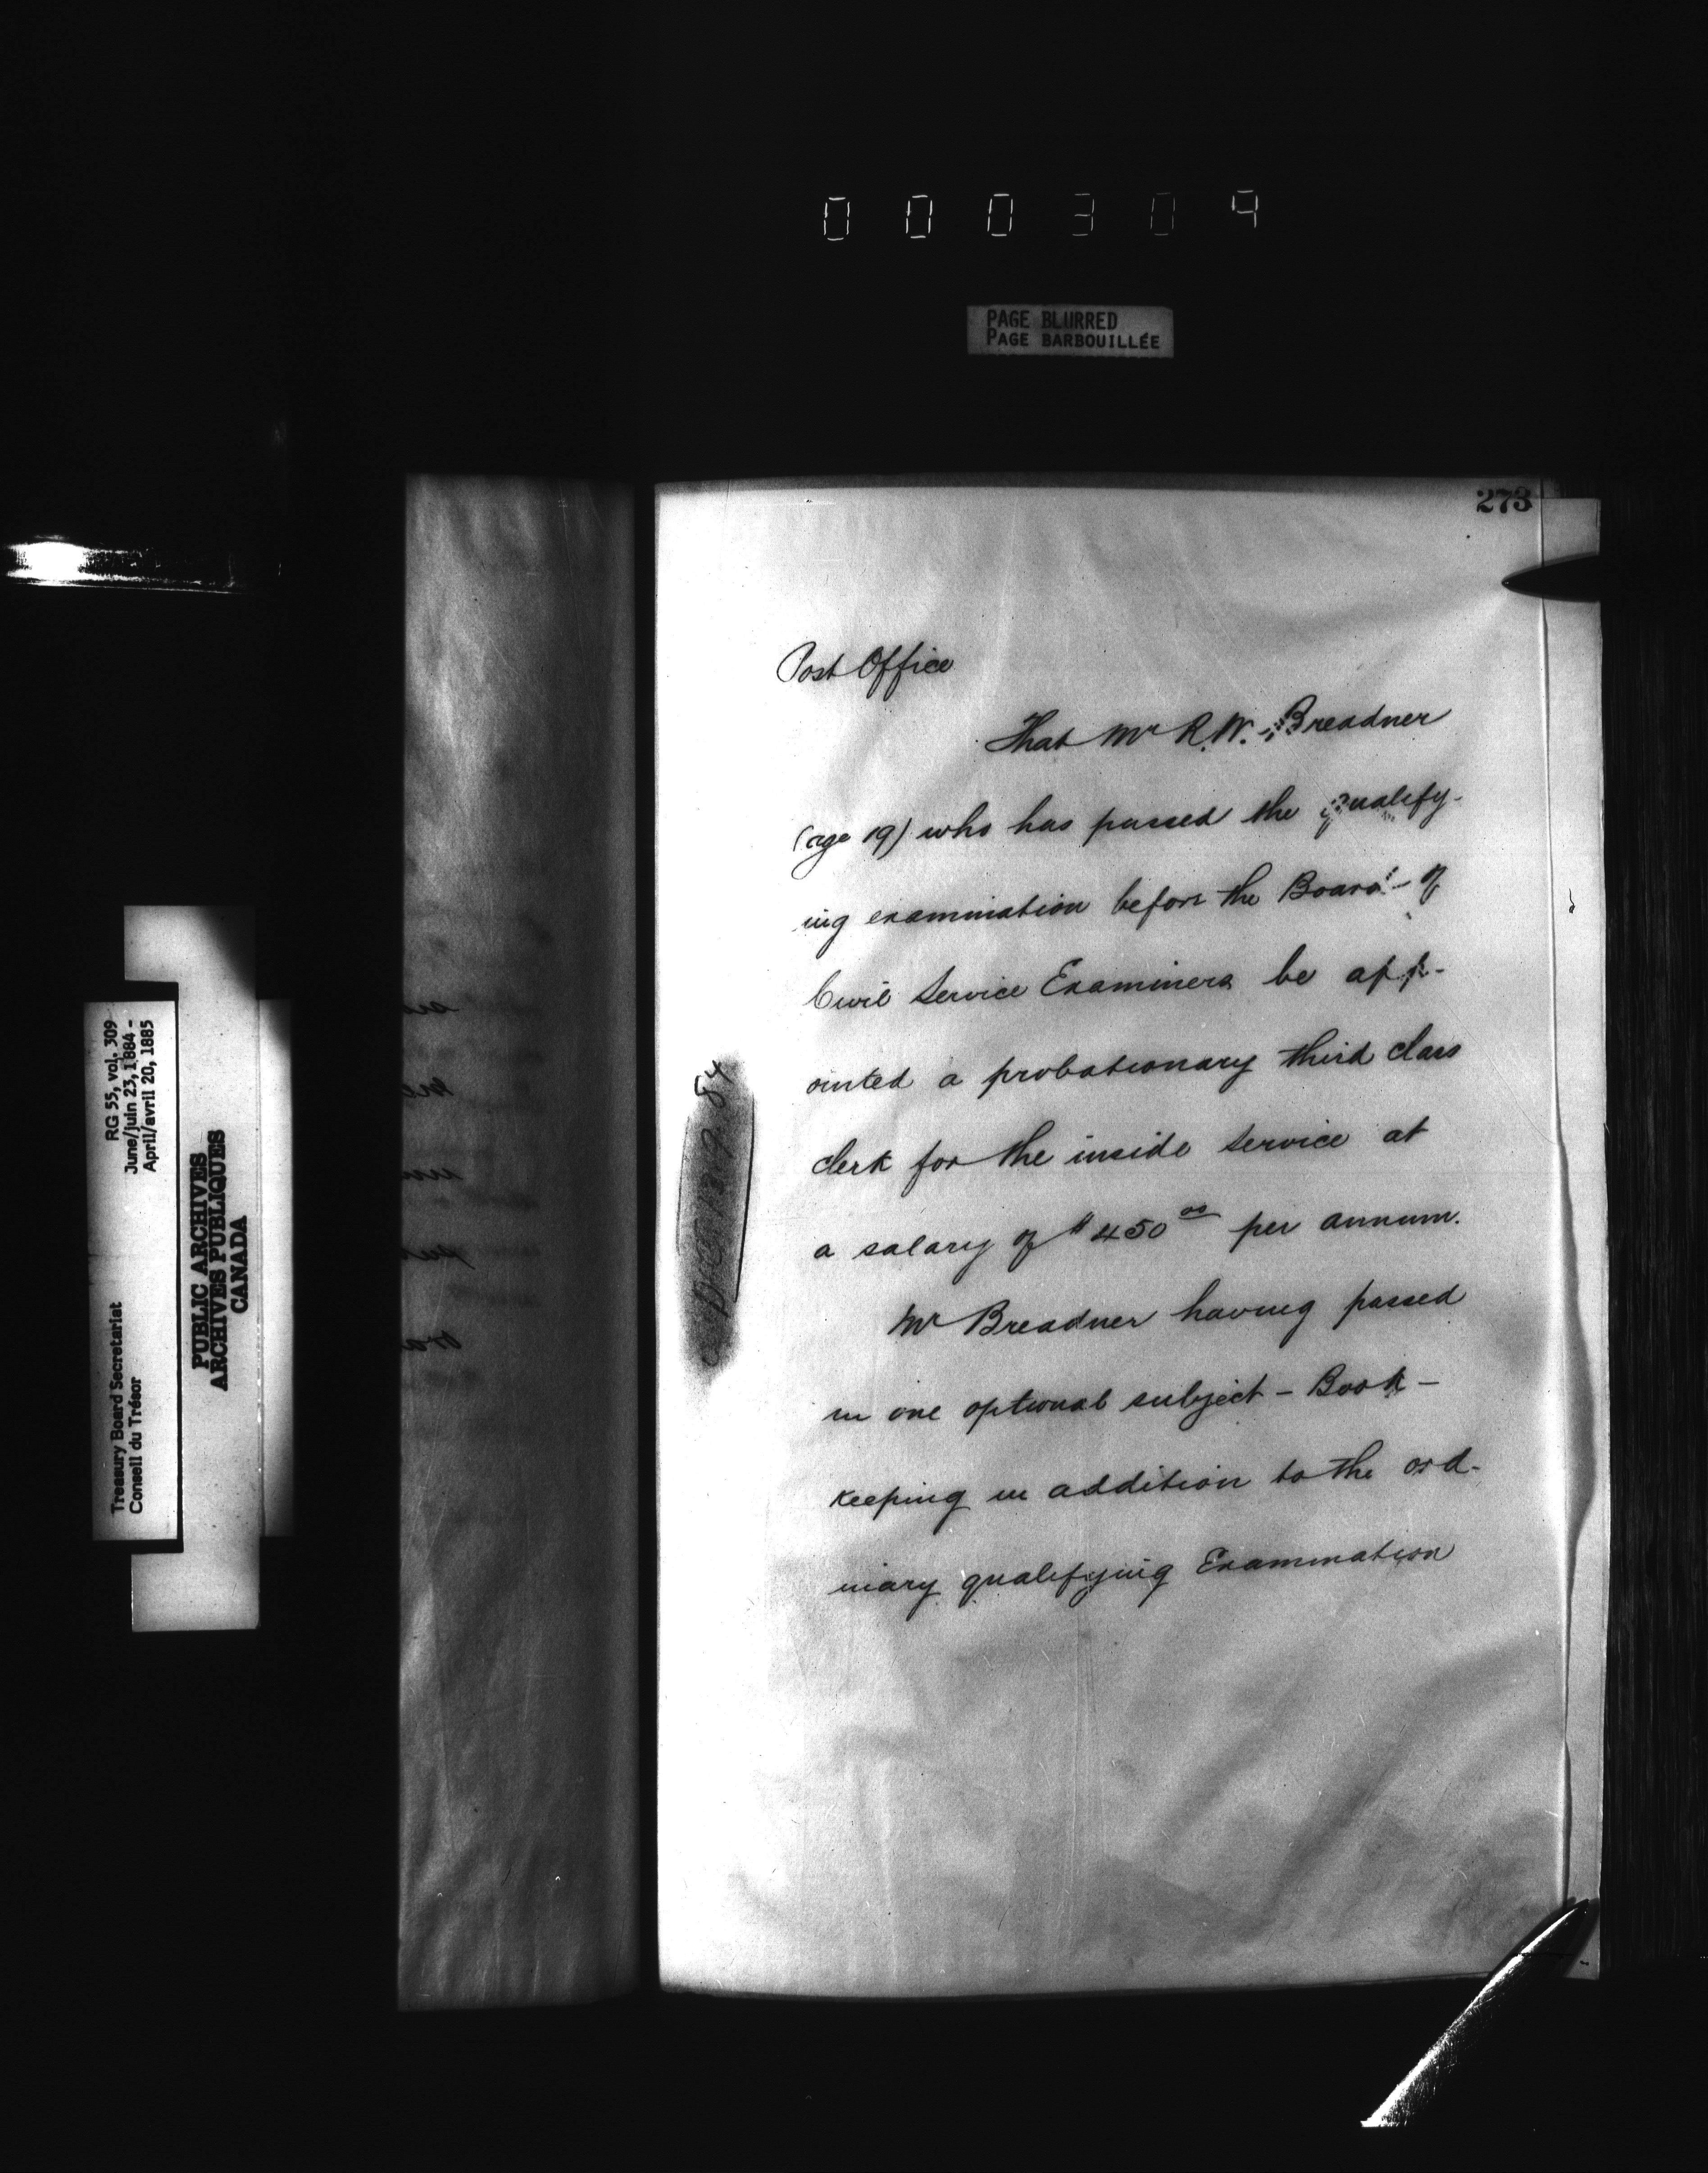 000304
PAGE BLURRED
PAGE BARBOUILLÉE
273
Post Office
That Mr R.W. Breadner
(age 19) who has passed the qualify-
ing examination before the Board of
Civil Service Examiners be app-
ointed a probationary third class
clerk for the inside service at
a salary of $450 00 per annum.
Mr Breadner having passed
in one optional subject - Book-
keeping in addition to the ord-
inary qualifying Examination
84
RG 55, vol. 309
June/juin 23, 1884 -
April/avril 20, 1885
Treasury Board Secretariat
Conseil du Trésor
PUBLIC ARCHIVES
ARCHIVES PUBLIQUES
CANADA